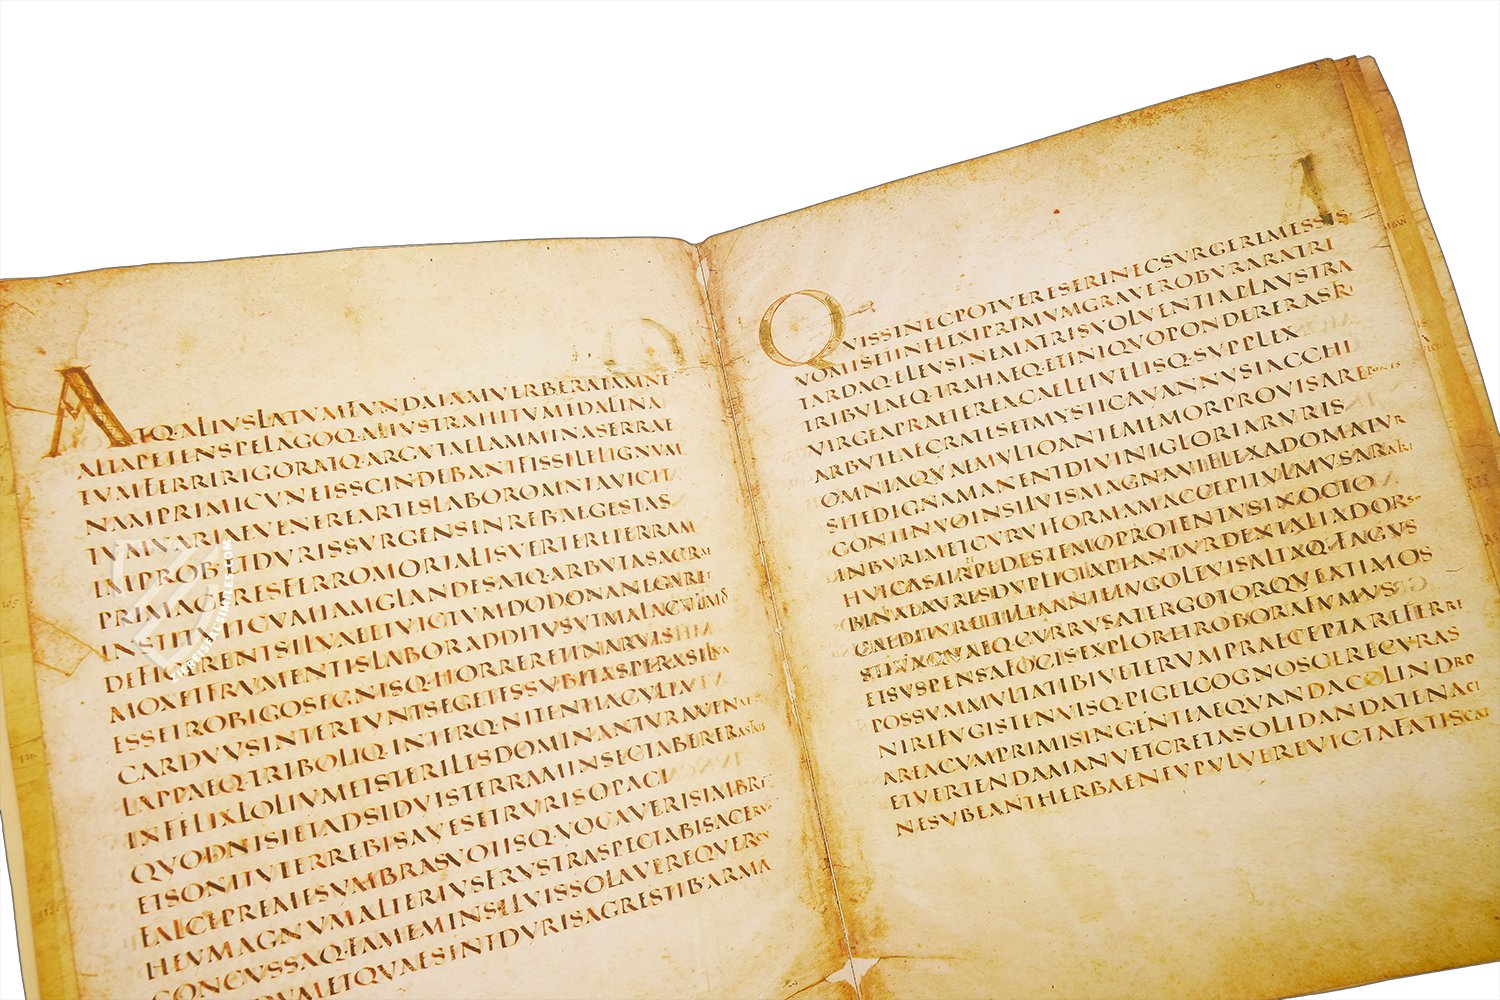 ATQ·ALIVSLATVMFVNDAIAMVERBERATAMNE
ALTAPETENSPELAGOQ·ALIVSTRAHITVMIDALINA
TVMFERRIRIGORATQ·ARGVTAELAMMINASERRAE
NAMPRIMICVNEISSCINDEBANTFISSILELIGNVM
TVMVARIAEVENEREARTESLABOROMNIAVICIT
IMPROB·ETDVRISSVRGENSINREB·AEGESTAS
PRIMACERESFERROMORTALISVERTERETERRAM
INSTITVITCVMIAMGLANDESATQ·ARBVTASACRAE
DEFICERENTSILVAEETVICTVMDODONANEGARET
MOXETFRVMENTISLABORADDITVSVTMALACVLMOS
ESSETROBIGOSEGNISQ·HORRERETINARVIS
CARDVVSINTEREVNTSEGETESSVBITASPERASILVA
LAPPAEQ·TRIBOLIQ·INTERQ·NITENTIACVLTA
INFELIXLOLIVMETSTERILESDOMINANTVRAVENAE
QVODNISIETADSIDVISTERRAMINSECTABERERASTRIS
ETSONITVTERREBISAVESETRVRISOPACI
FALCEPREMESVMBRASVOTISQ·VOCAVERISIMBREM
HEVMAGNVMALTERIVSFRVSTRASPECTABISACERVOM
CONCVSSAQ·FAMEMINSILVISSOLAVEREQVERCV
DVMETQVAESINTDVRISAGRESTIB·ARMA
QVISSINECPOTVERESERINECSVRGEREMESSIS
VOMISETINFLEXIPRIMVMGRAVEROBVRARATRI
TARDAQ·ELEVSINEMATRISVOLVENTIAPLAVSTRA
TRIBVLAEQ·TRAHAEQ·ETINIQVOPONDERERASRI
VIRGEAPRAETEREACAELEIVILISQ·SVPPLEX
ARBVTEAECRATISETMYSTICAVANNVSIACCHI
OMNIAQVAEMVLTOANTEMEMORPROVISAREPONIS
SITEDIGNAMANENTDIVINIGLORIARVRIS
CONTINVOINSILVISMAGNAVIFLEXADOMATVR
INBVRIMETCVRVIFORMAMACCEPITVLMVSARATRI
HVICASTIRPEPEDESTEMOPROTENTVSINOCTO
BINAEAVRESDVPLICIAPTANTVRDENTALIADORSO
CAEDITVRETTILIAANTEIVGOLEVISALTAQ·FAGVS
STIVAQVAECVRRVSATERGOTORQVEATIMOS
ETSVSPENSAFOCISEXPLORETROBORAFVMVS
POSSVMMVLTATIBIVETERVMPRAECEPTAREFERRE
NIREFVGISTENVISQ·PIGETCOGNOSCERECVRAS
AREACVMPRIMISINGENTIAEQVANDACOLINDRO
ETVERTENDAMANVETCRETASOLIDANDATENACI
NESVBEANTHERBAENEVPVLVEREVICTAFATISCAT